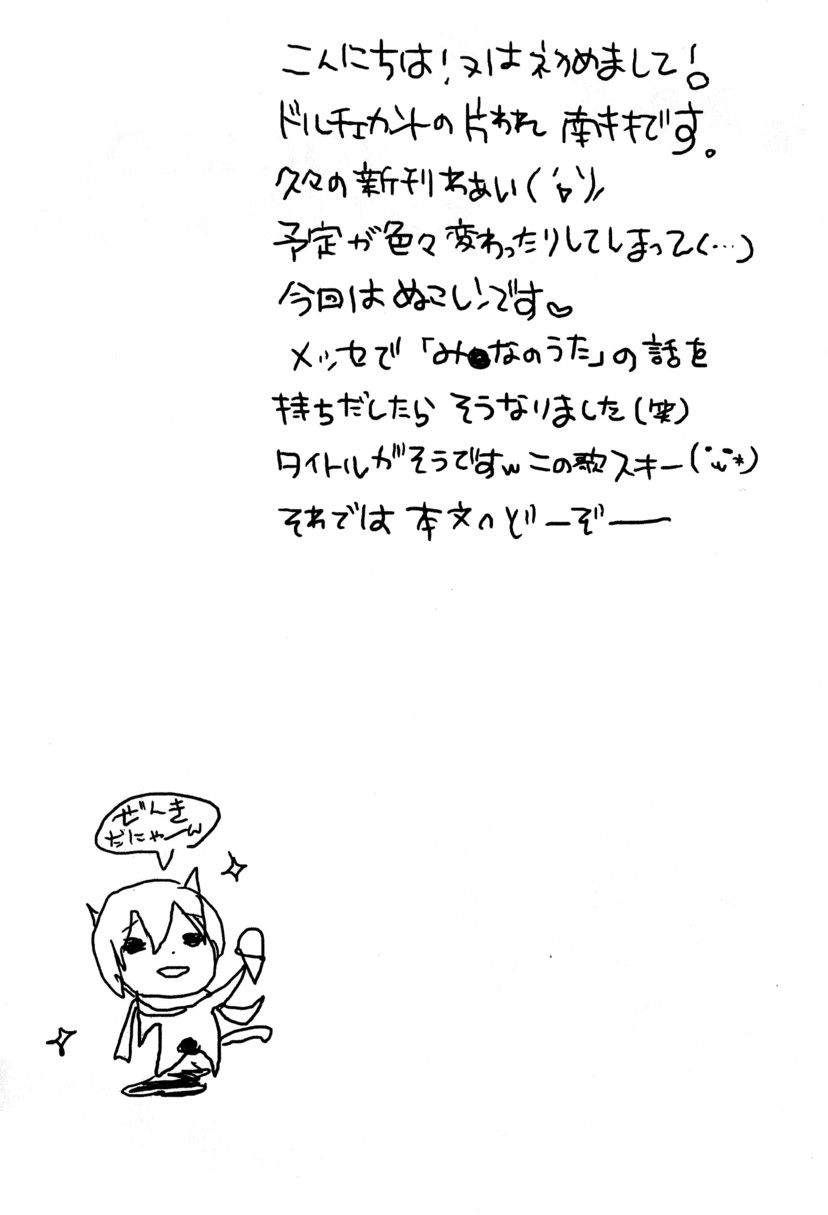 こんにちは!又は初めまして!
ドルチェカントの片われ 南キキです。
久々の新刊わあい('ワ')ノ
予定が色々変わったりしてしまって(…)
今回はぬこレンです♡
メッセで「み●なのうた」の話を
持ちだしたら そうなりました(笑)
タイトルがそうですw この歌スキー(˙ω˙*)
それでは 本文へどーぞー
ぜんき
だにゃーw